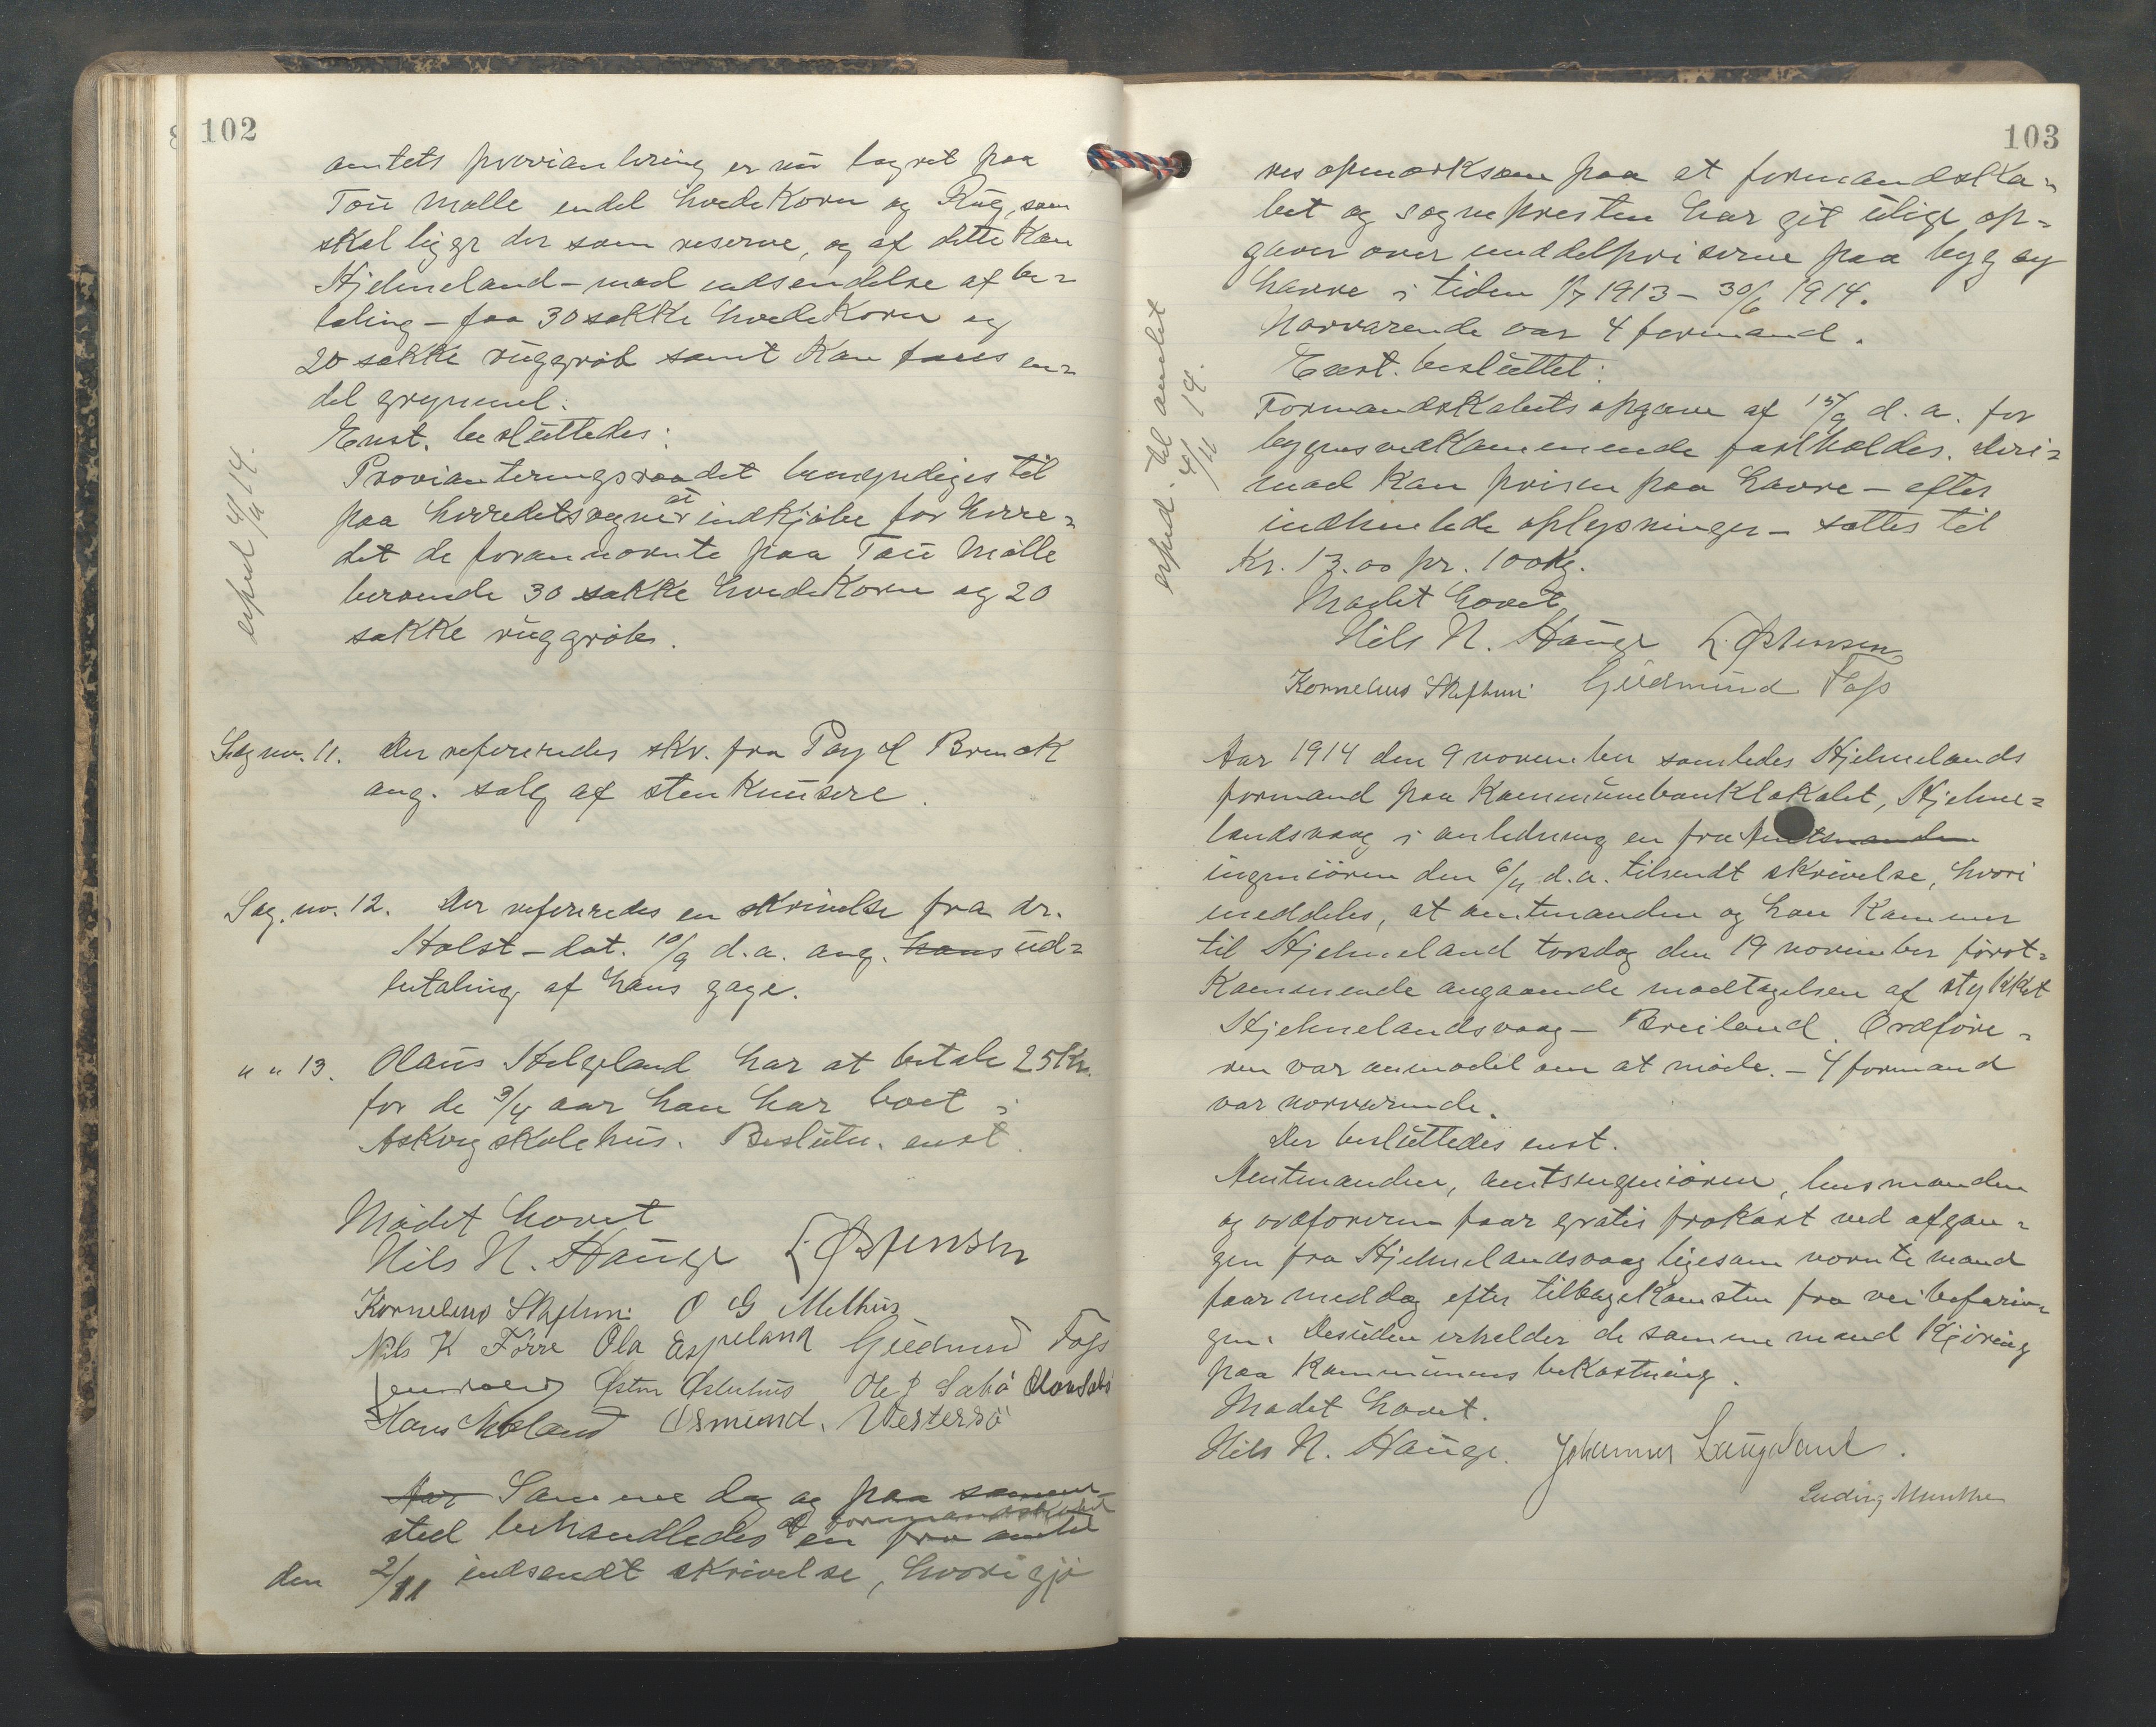 102
amtets proviantering er nu lagret paa
Tou Mølle endel hvedekorn og Rug, som
skal ligge der som reserve, og af dette kan
Hjelmeland – mod indsendelse af be=
taling – faa 30 sække hvedekorn og
20 sække ruggrøb samt kan faaes en=
del grynmel.
Enst. besluttedes:
Provianteringsraadet bemyndiges til
paa herredets vegner at indkjøbe for herre=
det de forannævnte paa Tou Mølle
beroende 30 sække hvedekorn og 20
sække ruggrøb.
exped 4/11 14.
Sag no. 11. Der refereredes skr. fra Pay & Brinck
ang. salg af stenknusere.
Sag. no. 12. Der refereredes en skrivelse fra dr.
Holst – dat. 10/9 d.a. ang. hans ud=
betaling af hans gage.
" " 13. Olaus Helgeland har at betale 25 Kr.
for de 3/4 aar han har boet i
Askvig skolehus. Beslutn. enst.
Mødet hævet
Nils N. Hauge L Østensen
Kornelius Skiftun O G Melhus
Nils K Førre Ola Espeland Gudmund Foss
Østen Østerhus Ole J Sæbø Olav Sæbø
Hans Meland Osmund. Vestersø
Aar Samme dag og paa samme
sted behandledes af formandskabet en fra amtet
den 2/11 indsendt skrivelse, hvori gjø
103
res opmærksom paa at formandska=
bet og sognepresten har git ulige op=
gaver over middelpriserne paa byg og
havre i tiden 1/7 1913 – 30/6 1914.
Nærværende var 4 formænd.
Enst. besluttet:
Formandskabets opgave af 15/9 d.a. for
byggens vedkommende fastholdes. Deri=
mod kan prisen paa havre – efter
indhentede oplysninger – sættes til
Kr. 13.00 pr. 100 kg.
Mødet hævet
exped. til amtet
4/11 14.
Nils N. Hauge L. Østensen
Kornelius Skiftun Gudmund Foss
Aar 1914 den 9 november samledes Hjelmelands
formænd paa Kommunebanklokalet, Hjelme=
landsvaag i anledning en fra Amtsmanden
ingeniøren den 6/11 d.a. tilsendt skrivelse, hvori
meddeles, at amtmanden og han kommer
til Hjelmeland torsdag den 19 november først=
kommende angaaende modtagelsen af stykket
Hjelmelandsvaag – Breiland. Ordføre=
ren var anmodet om at møde. – 4 formænd
var nærværende.
Der besluttedes enst.
Amtmanden, amtsingeniøren, lensmanden
og ordføreren faar gratis frokost ved afgan=
gen fra Hjelmelandsvaag ligesom nævnte mænd
faar middag efter tilbagekomsten fra veibefarin=
gen. Desuden erholder de samme mænd kjøring
paa kommunens bekostning.
Mødet hævet.
Nils N. Hauge. Johannes Laugaland.
Ludvig Munthe